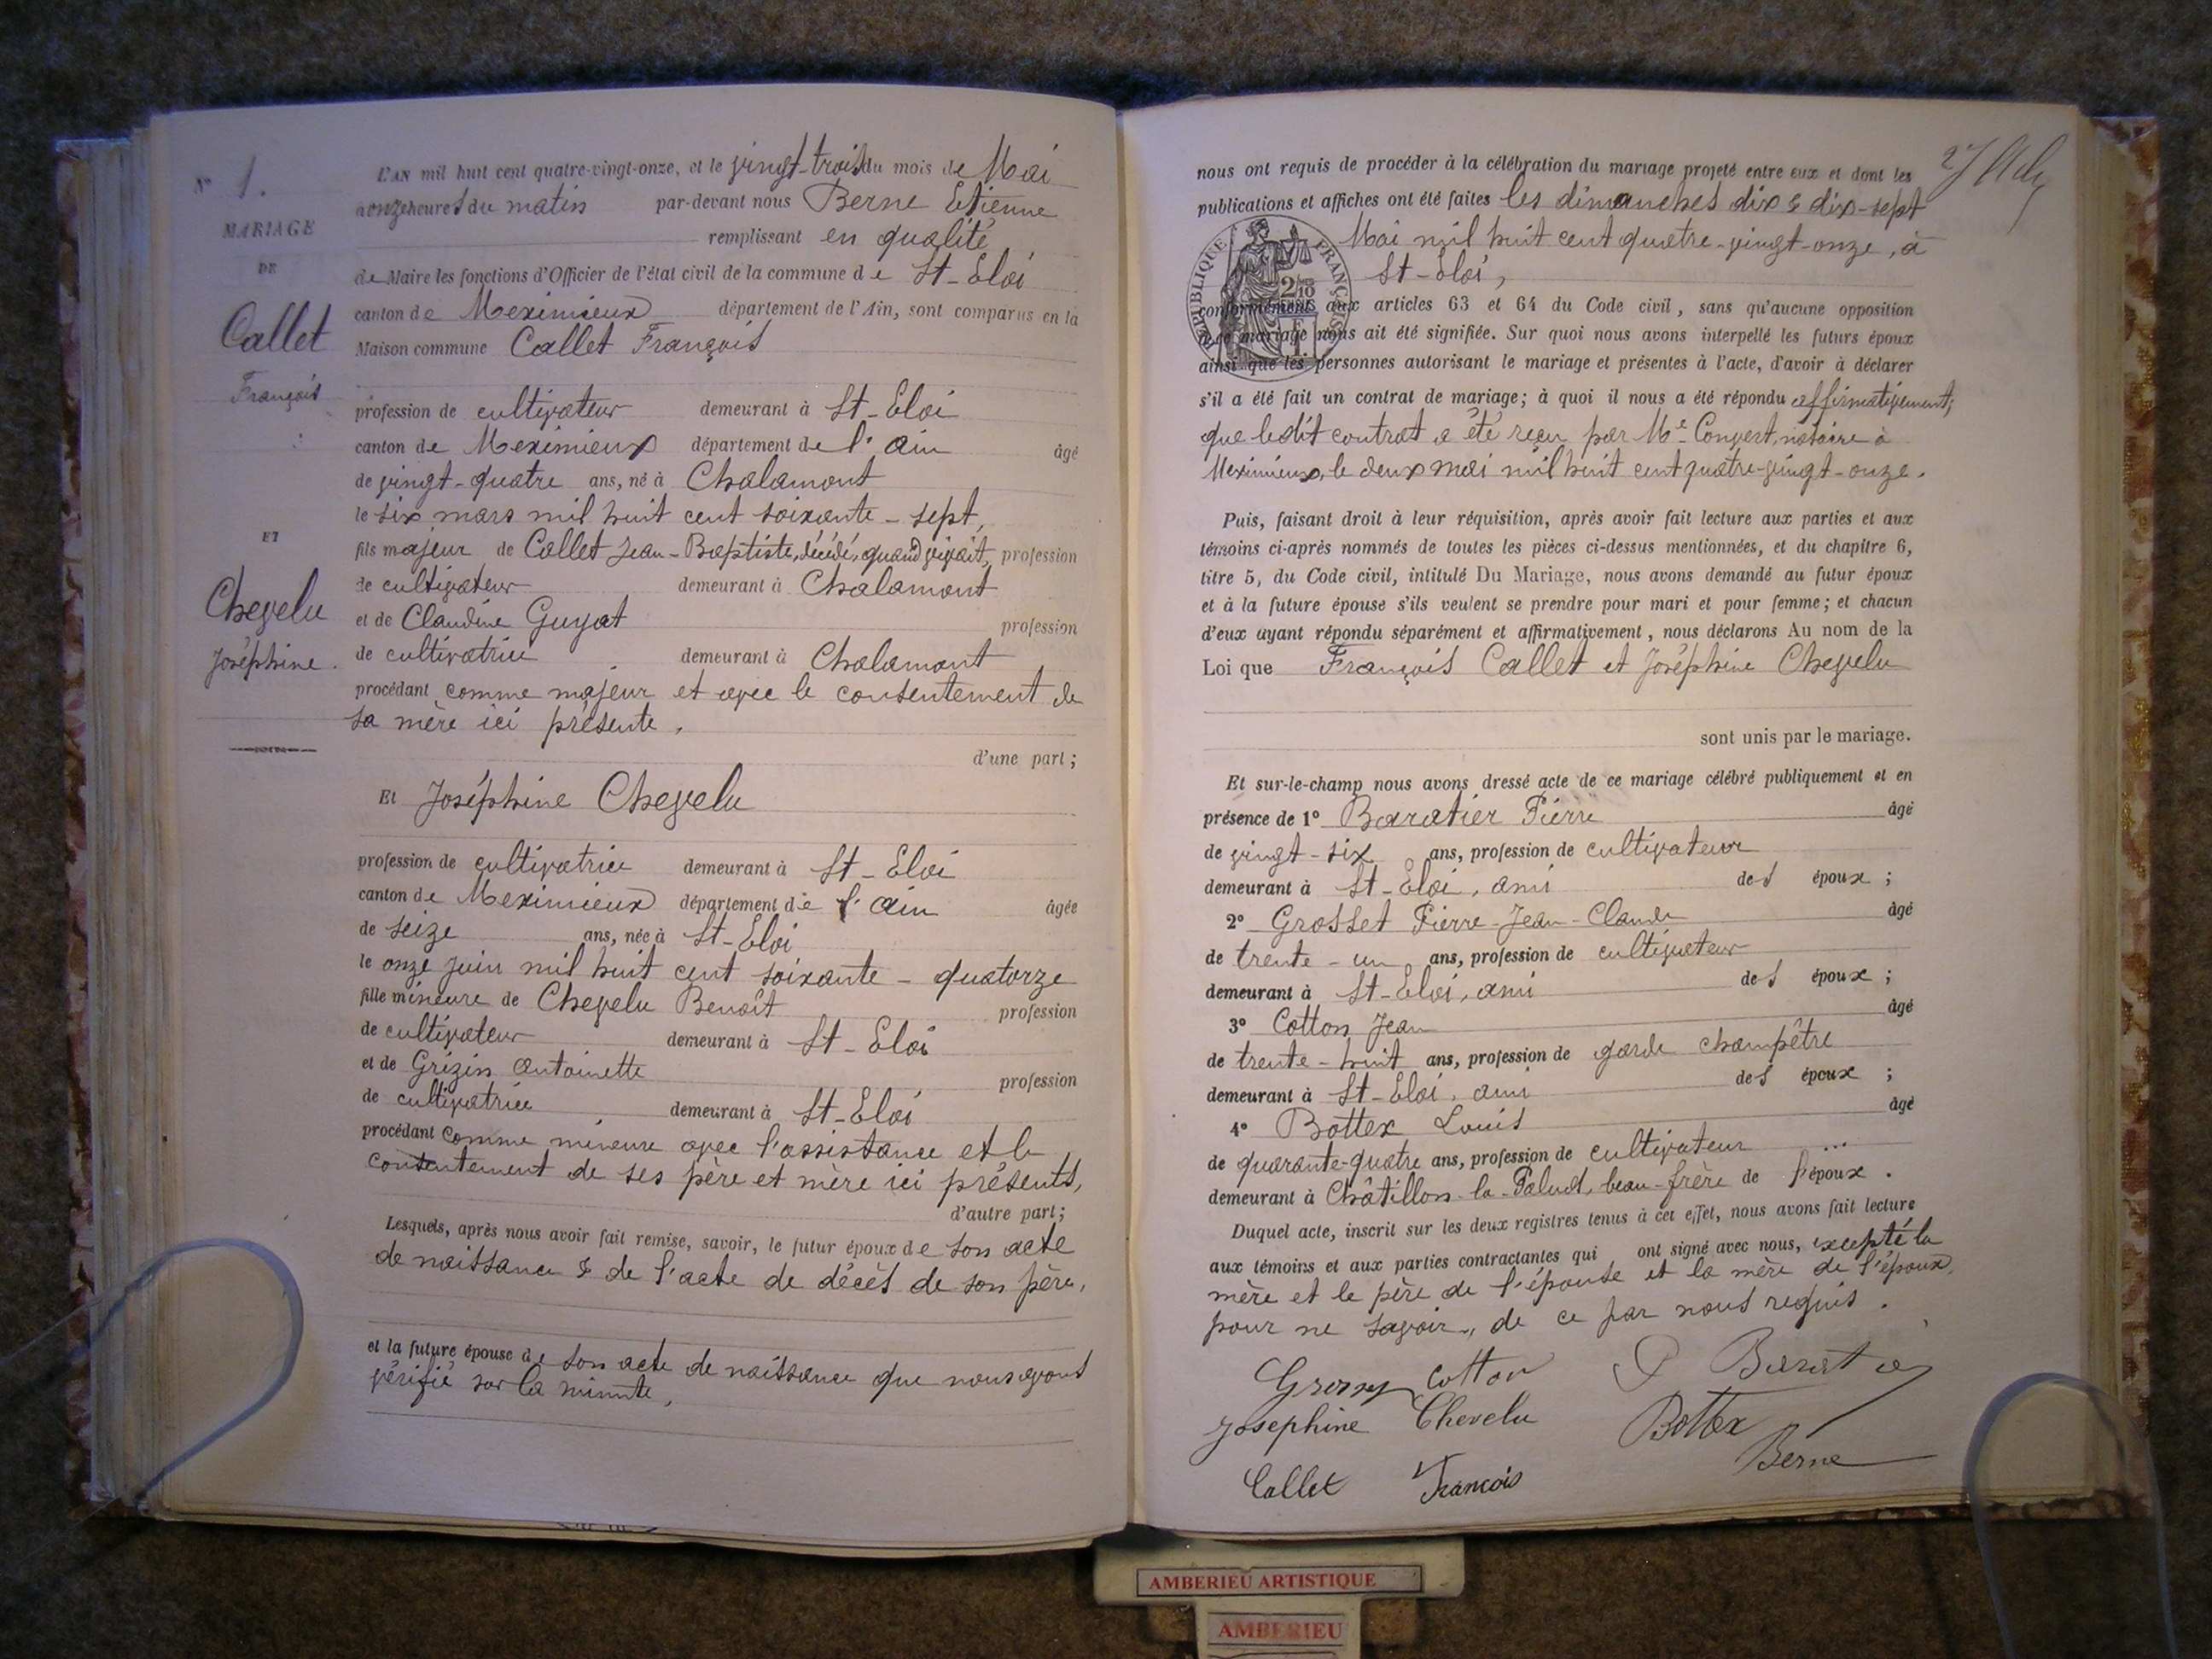 N° 1.
MARIAGE
DE
Callet
François
ET
Chevelu
Joséphine.
L'AN mil huit cent quatre-vingt-onze, et le vingt-trois du mois de Mai
à onze heures du matin par-devant nous Berne Etienne
remplissant en qualité
de Maire les fonctions d'Officier de l'état civil de la commune de St-Eloi
canton de Meximieux département de l'Ain, sont comparus en la
Maison commune Callet François
profession de cultivateur demeurant à St-Eloi
canton de Meximieux département de l'Ain âgé
de vingt-quatre ans, né à Chalamont
le six mars mil huit cent soixante-sept,
fils majeur de Callet Jean-Baptiste, décédé, quand vivait, profession
de cultivateur demeurant à Chalamont
et de Claudine Guyot profession
de cultivatrice demeurant à Chalamont
procédant comme majeur et avec le consentement de
sa mère ici présente,
d'une part;
Et Joséphine Chevelu
profession de cultivatrice demeurant à St-Eloi
canton de Meximieux département de l'Ain âgée
de seize ans, née à St-Eloi
le onze juin mil huit cent soixante-quatorze
fille mineure de Chevelu Benoît profession
de cultivateur demeurant à St-Eloi
et de Grizin Antoinette profession
de cultivatrice demeurant à St-Eloi
procédant comme mineure avec l'assistance et le
consentement de ses père et mère ici présents,
d'autre part;
Lesquels, après nous avoir fait remise, savoir, le futur époux de son acte
de naissance & de l'acte de décès de son père,
et la future épouse de son acte de naissance que nous avons
vérifié sur la minute,
nous ont requis de procéder à la célébration du mariage projeté entre eux et dont les
publications et affiches ont été faites les dimanches dix & dix-sept
Mai mil huit cent quatre-vingt-onze, à
St-Eloi,
RÉPUBLIQUE FRANÇAISE
conformément aux articles 63 et 64 du Code civil, sans qu'aucune opposition
à ce mariage nous ait été signifiée. Sur quoi nous avons interpellé les futurs époux
ainsi que les personnes autorisant le mariage et présentes à l'acte, d'avoir à déclarer
s'il a été fait un contrat de mariage; à quoi il nous a été répondu affirmativement,
que ledit contrat a été reçu par Me Convert, notaire à
Meximieux, le deux mai mil huit cent quatre-vingt-onze.
Puis, faisant droit à leur réquisition, après avoir fait lecture aux parties et aux
témoins ci-après nommés de toutes les pièces ci-dessus mentionnées, et du chapitre 6,
titre 5, du Code civil, intitulé Du Mariage, nous avons demandé au futur époux
et à la future épouse s'ils veulent se prendre pour mari et pour femme; et chacun
d'eux ayant répondu séparément et affirmativement, nous déclarons Au nom de la
Loi que François Callet et Joséphine Chevelu
sont unis par le mariage.
Et sur-le-champ nous avons dressé acte de ce mariage célébré publiquement et en
présence de 1° Baratier Pierre âgé
de vingt-six ans, profession de cultivateur
demeurant à St-Eloi, ami des époux;
2° Grosset Pierre-Jean-Claude âgé
de trente-un ans, profession de cultivateur
demeurant à St-Eloi, ami des époux;
3° Cotton Jean âgé
de trente-huit ans, profession de garde champêtre
demeurant à St-Eloi, ami des époux;
4° Bottex Louis âgé
de quarante-quatre ans, profession de cultivateur ...
demeurant à Châtillon-la-Palud, beau-frère de l'époux.
Duquel acte, inscrit sur les deux registres tenus à cet effet, nous avons fait lecture
aux témoins et aux parties contractantes qui ont signé avec nous, excepté la
mère et le père de l'épouse et la mère de l'époux,
pour ne savoir, de ce par nous requis.
Cotton P Baratier
Josephine Chevelu Bottex
Berne
Callet François
AMBERIEU ARTISTIQUE
AMBERIEU